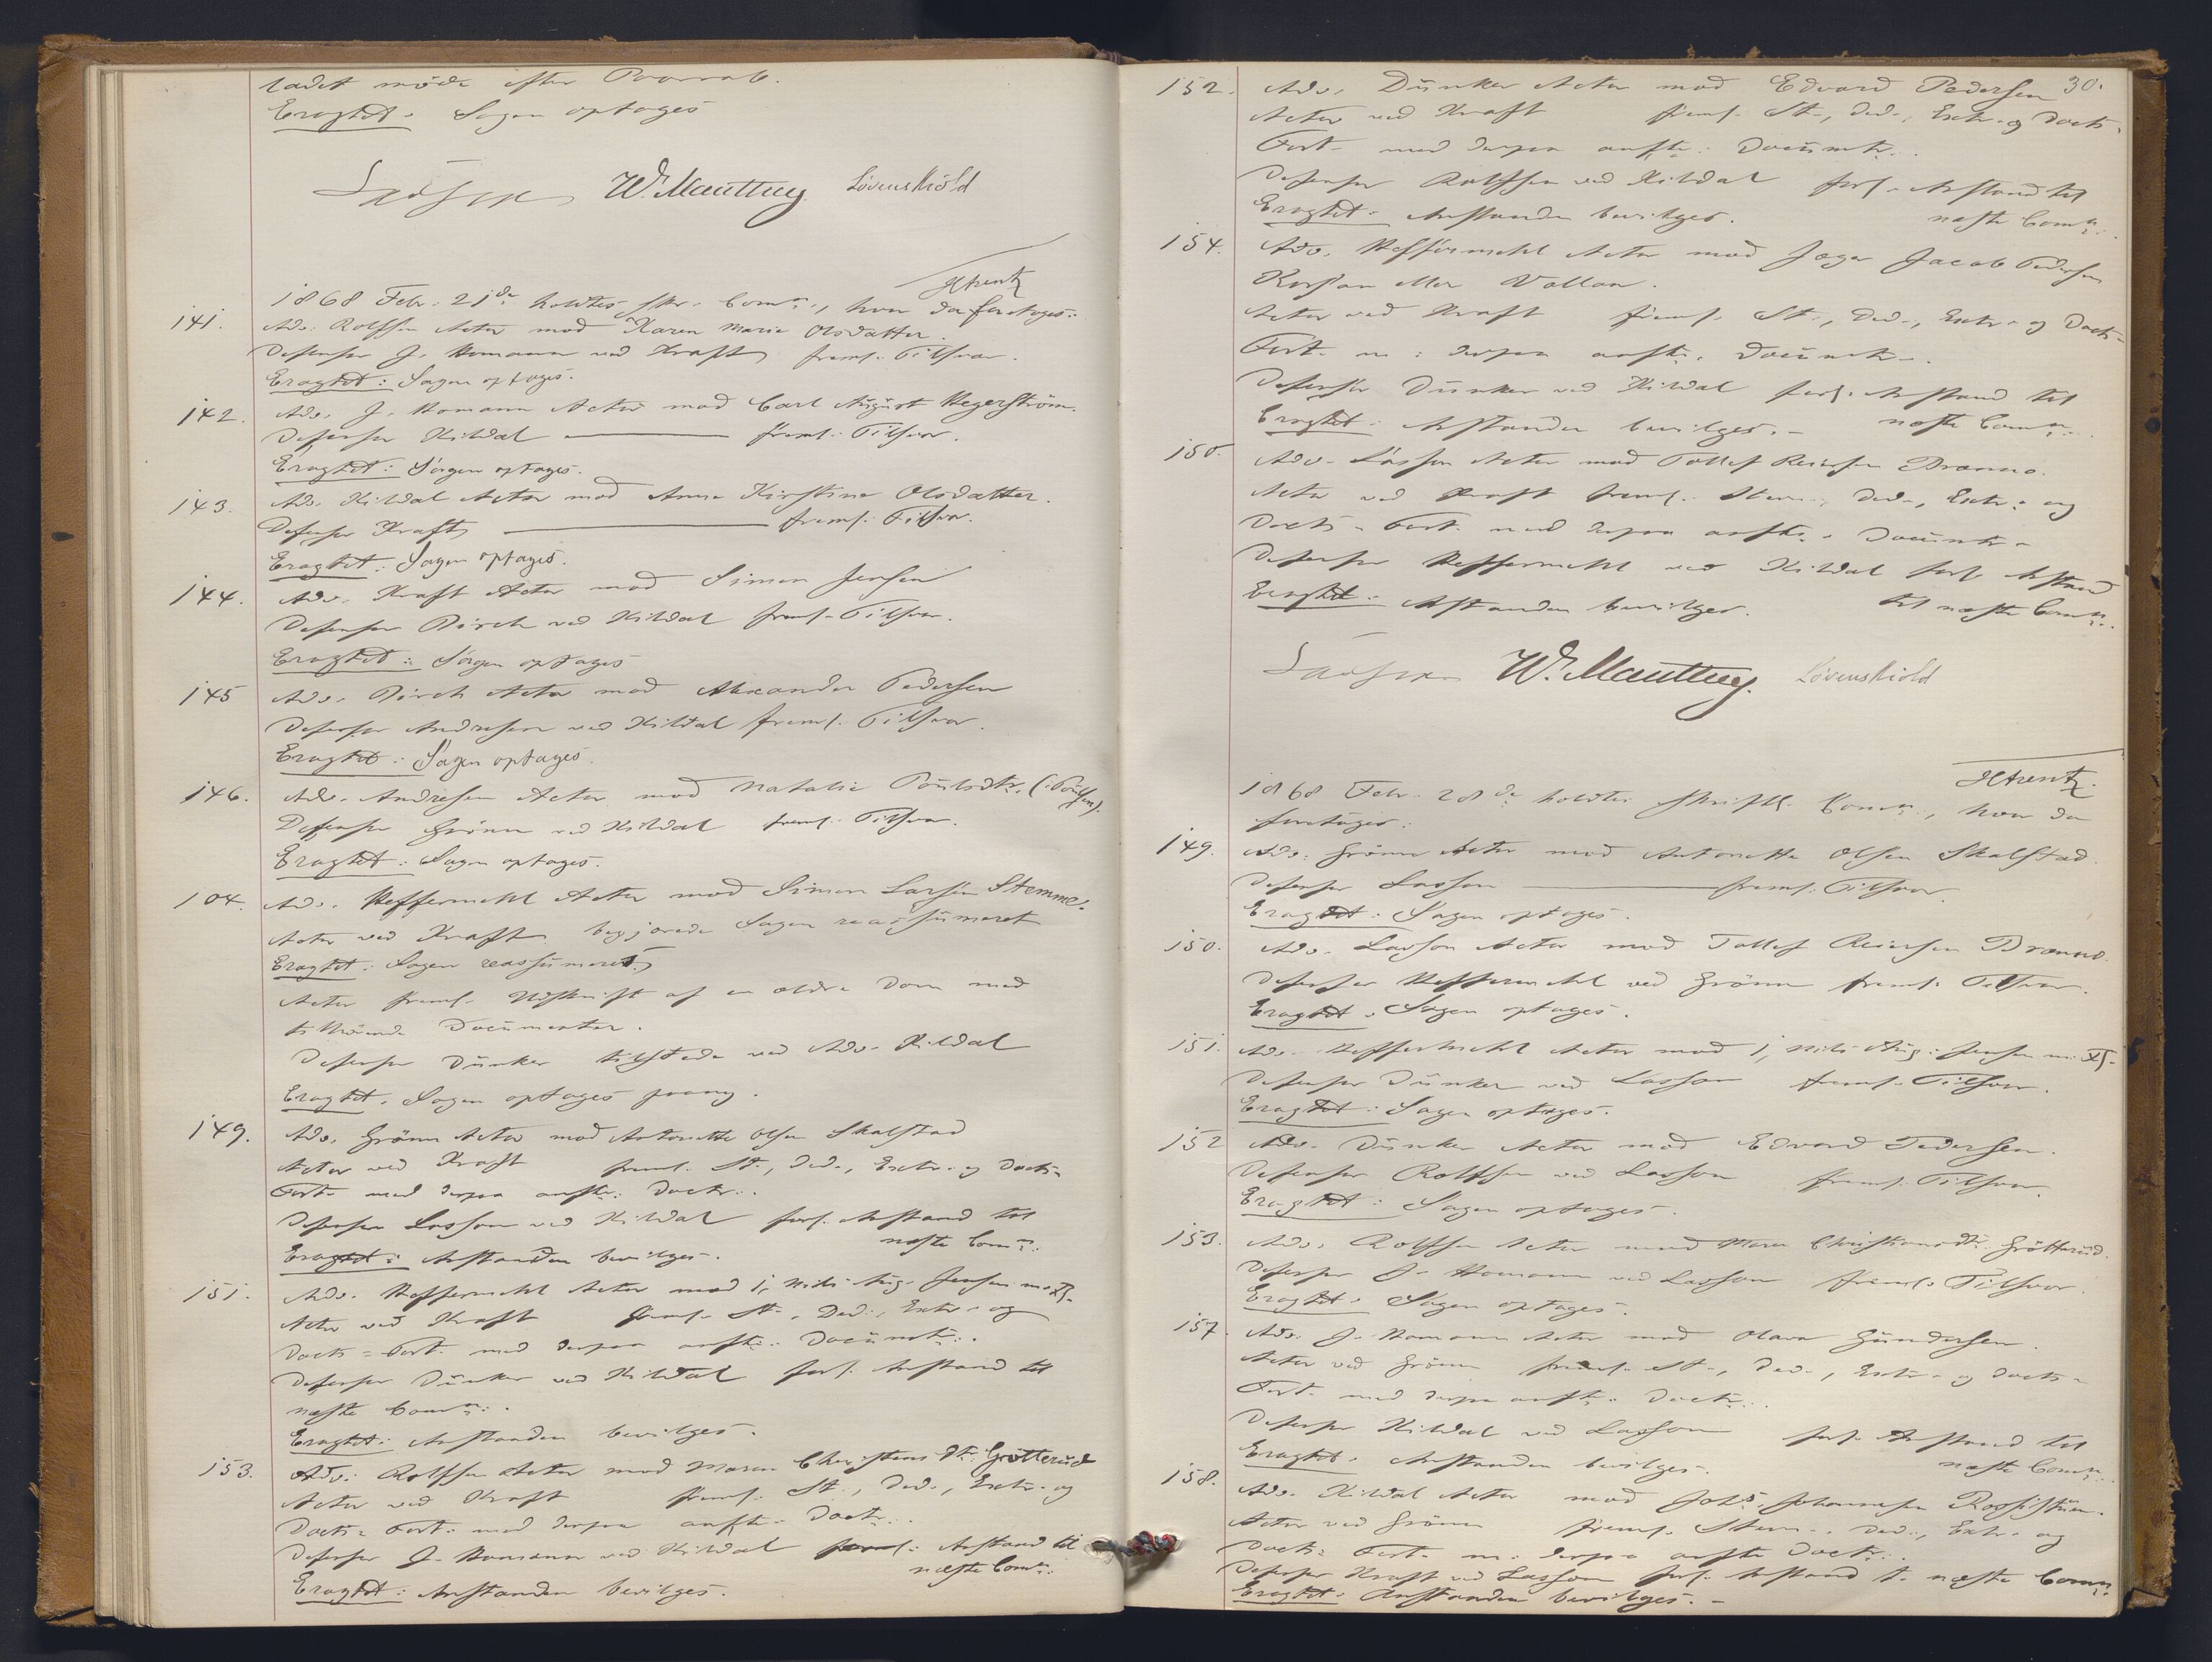 ladet møde efter Proorab.
Eragtet: Sagen optages
Lasson W. Manthey Løvenskiold
HArentz
1868 Febr. 21de holdtes skr. Comn., hvor da foretoges:
141. Adv. Rolfsen Actor mod Karen Marie Olsdatter.
Defensor J. Homann ved Kraft freml. Tilsvar.
Eragtet: Sagen optages.
142. Adv. J. Homann Actor mod Carl August Hegerström.
Defensor Kildal freml. Tilsvar.
Eragtet: Sagen optages.
143. Adv. Kildal Actor mod Anne Kirstine Olsdatter.
Defensor Kraft freml. Tilsvar.
Eragtet: Sagen optages.
144. Adv. Kraft Actor mod Simen Jensen
Defensor Birch ved Kildal freml. Tilsvar.
Eragtet: Sagen optages
145 Adv. Birch Actor mod Alexander Pedersen
Defensor Andresen ved Kildal freml. Tilsvar.
Eragtet: Sagen optages.
146. Adv. Andresen Actor mod Natalie Poulsdtr. (: Poulsen).
Defensor Grönn ved Kildal freml. Tilsvar.
Eragtet: Sagen optages.
104. Adv. Heffermehl Actor mod Simen Larsen Stemme.
Actor ved Kraft begjærede Sagen reassumeret
Eragtet: Sagen reassumeret.
Actor freml. Udskrift af en ældre Dom med
tilhørende Documenter.
Defensor Dunker tilstede ved Adv. Kildal
Eragtet. Sagen optages paany.
149. Adv. Grönn Actor mod Antonette Olsen Skalstad
Actor ved Kraft freml. St., Ded., Extr. og Docts-
Fort. med derpaa anfte. Doctr..
Defensor Lasson ved Kildal forl. Anstand til
næste Comn.
Eragtet: Anstanden bevilges.
151. Adv. Heffermehl Actor mod 1, Nils Aug. Jensen m. Fl.
Actor ved Kraft freml. St., Ded., Extr. og
Docts-Fort. med derpaa anfte. Documtr..
Defensor Dunker ved Kildal forl. Anstand til
næste Comn.
Eragtet: Anstanden bevilges.
153. Adv. Rolfsen Actor mod Maren Christensdtr. Grötterud
Actor ved Kraft freml. St., Ded., Extr. og
Docts-Fort. med derpaa anfte. Doctr..
Defensor J. Homann ved Kildal forl. Anstand til
næste Comn.
Eragtet: Anstanden bevilges.
30.
152. Adv. Dunker Actor mod Edvard Pedersen
Actor ved Kraft freml. St., Ded., Extr. og Docts-
Fort. med derpaa anfte. Documtr..
Defensor Rolfsen ved Kildal forl. Anstand til
næste Comn.
Eragtet: Anstanden bevilges.
154. Adv. Heffermehl Actor mod Jæger Jacob Pedersen
Korsan eller Vollan.
Actor ved Kraft freml. St., Ded., Extr. og Docts-
Fort. m: derpaa anfte. Documtr.
Defensor Dunker ved Kildal forl. Anstand til
næste Comn.
Eragtet: Anstanden bevilges.-
150. Adv. Lasson Actor mod Tollef Reiersen Brænno.
Actor ved Kraft freml. Stevn., Ded., Extr. og
Docts-Fort. med derpaa anfte. Documtr.
Defensor Heffermehl ved Kildal forl. Anstand
til næste Comn.
Eragtet: Anstanden bevilges.
Lasson W. Manthey. Løvenskiold
HArentz.
1868 Febr. 28de holdtes skriftl. Comn., hvor da
foretoges:
149. Adv. Grönn Actor mod Antonette Olsen Skalstad.
Defensor Lasson freml. Tilsvar.
Eragtet: Sagen optages.
150. Adv. Lasson Actor mod Tollef Reiersen Brænno.
Defensor Heffermehl ved Grönn freml. Tilsvar.
Eragtet: Sagen optages.
151. Adv. Heffermehl Actor mod 1, Nils Aug. Jensen m. Fl.
Defensor Dunker ved Lasson freml. Tilsvar.
Eragtet: Sagen optages.
152 Adv. Dunker Actor mod Edvard Pedersen.
Defensor Rolfsen ved Lasson freml. Tilsvar.
Eragtet: Sagen optages.
153. Adv. Rolfsen Actor mod Maren Christiansdtr. Grötterud.
Defensor J. Homann ved Lasson freml. Tilsvar.
Eragtet: Sagen optages.
157. Adv. J. Homann Actor mod Olava Gundersen.
Actor ved Grönn freml. St., Ded., Extr. og Docts-
Fort. med derpaa anfte. Doctr..
Defensor Kildal ved Lasson forl. Anstand til
næste Comn.
Eragtet. Anstanden bevilges.
158. Adv. Kildal Actor mod Johs. Johannesen
Actor ved Grönn freml. Stevn., Ded., Extr. og
Docts-Fort. m. derpaa anfte Doctr..
Defensor Kraft ved Lasson forl. Anstand t. næste Comn.
Eragtet: Anstanden bevilges.-